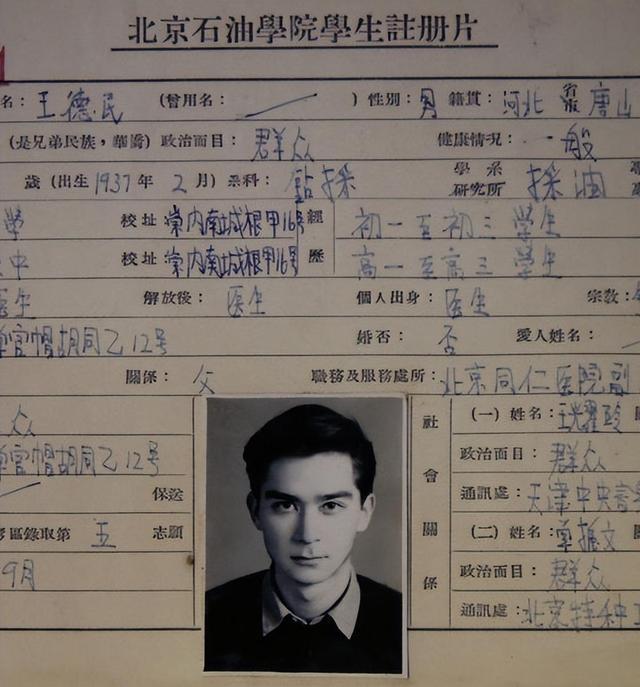 北京石油學院學生註册片
名：王德民 （曾用名： ） 性別：男 籍貫：河北 省市 唐山
（是兄弟民族，華僑）政治面目：群众 健康情况：一般
歲（出生1937年 2月）系科：鈷採 學系 研究所 採油
學 校址 崇内南城根甲16号 經 初一至初三 學生
中 校址 崇内南城根甲16号 歷 高一至高三 學生
医生 解放後：医生 個人出身：医生 宗教：
官帽胡同乙12号 婚否：否 愛人姓名：
關係：父 職務及服務處所：北京同仁医院副
众 社會關係 （一）姓名：
官帽胡同乙12号 政治面目：群众
保送 通訊處：天津中央
區錄取第 五 志願 （二）姓名：
9月 政治面目：群众
通訊處：北京特种工